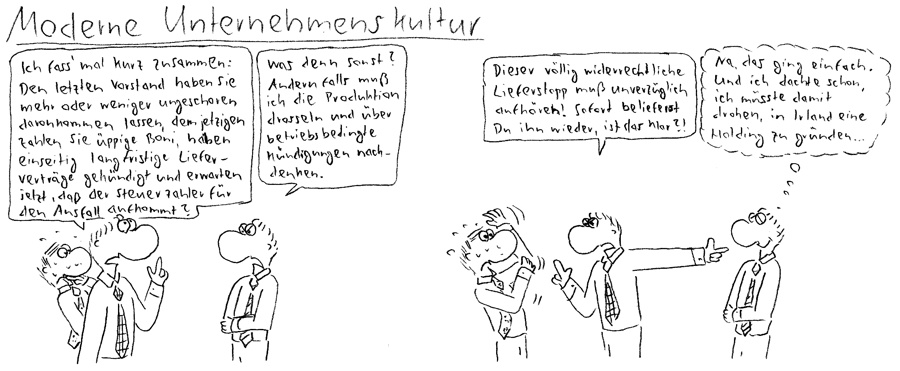 Moderne Unternehmenskultur
Ich fass' mal kurz zusammen:
Den letzten Vorstand haben Sie
mehr oder weniger ungeschoren
davonkommen lassen, dem jetzigen
zahlen Sie üppige Boni, haben
einseitig langfristige Liefer-
verträge gekündigt und erwarten
jetzt, daß der Steuerzahler für
den Ausfall aufkommt?
Was denn sonst?
Andernfalls muß
ich die Produktion
drosseln und über
betriebsbedingte
Kündigungen nach-
denken.
Dieser völlig widerrechtliche
Lieferstopp muß unverzüglich
aufhören! Sofort belieferst
Du ihn wieder, ist das klar?!
Na, das ging einfach.
Und ich dachte schon,
ich müsste damit
drohen, in Irland eine
Holding zu gründen...